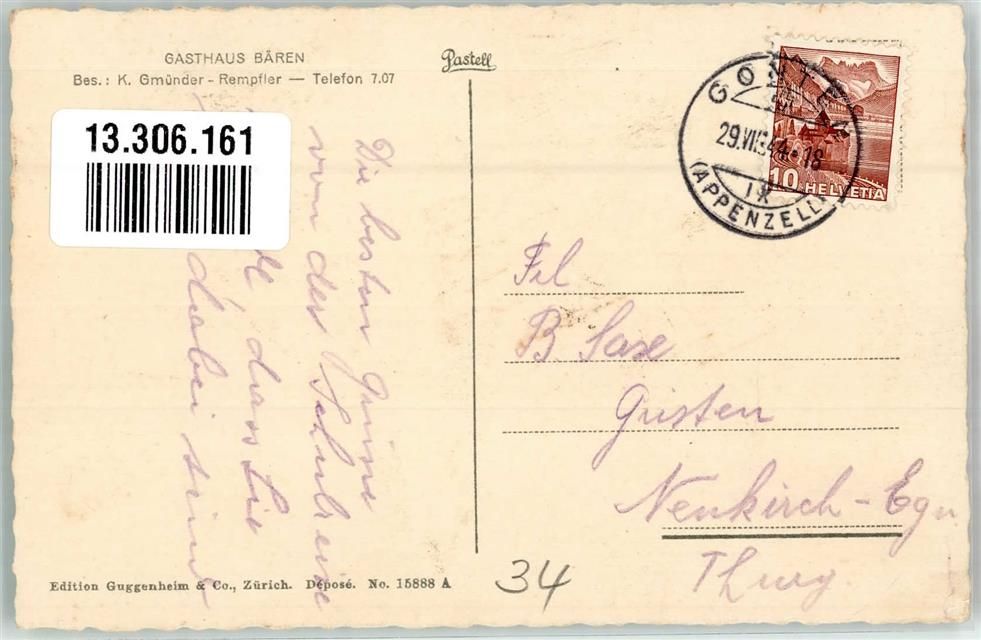 GASTHAUS BÄREN
Bes.: K. Gmünder-Rempfler — Telefon 7.07
Pastell
13.306.161
GONTEN
29.VII.44.-18
IX
(APPENZELL)
10 HELVETIA
Die besten Grüsse
von der Schulreise
dass Sie
dabei sind
Frl
B Saxe
Gristen
Neukirch-Egn
Thurg
34
Edition Guggenheim & Co., Zürich. Déposé. No. 15888 A